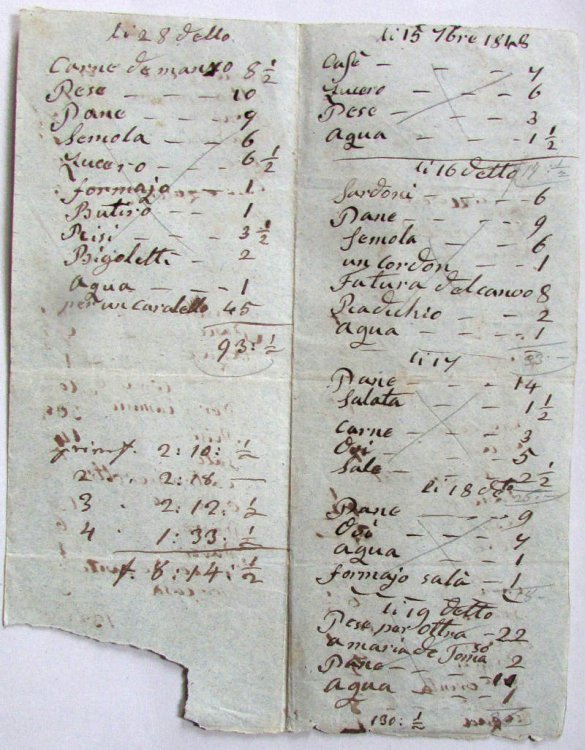 li 28 detto.
Carne de manzo 8 1/2
Pese — — — 10
Pane — — — 9
Semola — — 6
Zucero — — 6 1/2
formajo — — 1
Butiro — — 1
Risi — — 3 1/2
Bigoletti — 2
agua — — 1
per un caratello 45
93: 1/2
prim f. 2: 10: 1/2
2 . 2: 18. —
3 . 2: 12: 1/2
4 . 1: 33: 1/2
f. 8: 14: 1/2
li 15 7bre 1848
Cafè — — — 7
Zucero — — — 6
Pese — — — 3
agua — — — 1 1/2
li 16 detto 17: 1/2
Sardoni — — — 6
Pane — — — 9
Semola — — 6
un Cordon — — 1
Fatura del canoo 8
Radichio — — 2
agua — — 1
li 17 33
Pane — — — 14
Salata — — 1 1/2
Carne — — — 3
Ovi — — — 5
Sale — — — 2 1/2
li 18 deto
Pane — — 9
Ovi — — 7
agua — — 1
formajo salà — 1
li 19 detto
Pese per oltra — 22
a maria de Tomaso 2
Pane — — — 11
agua — — 1
130: 1/2